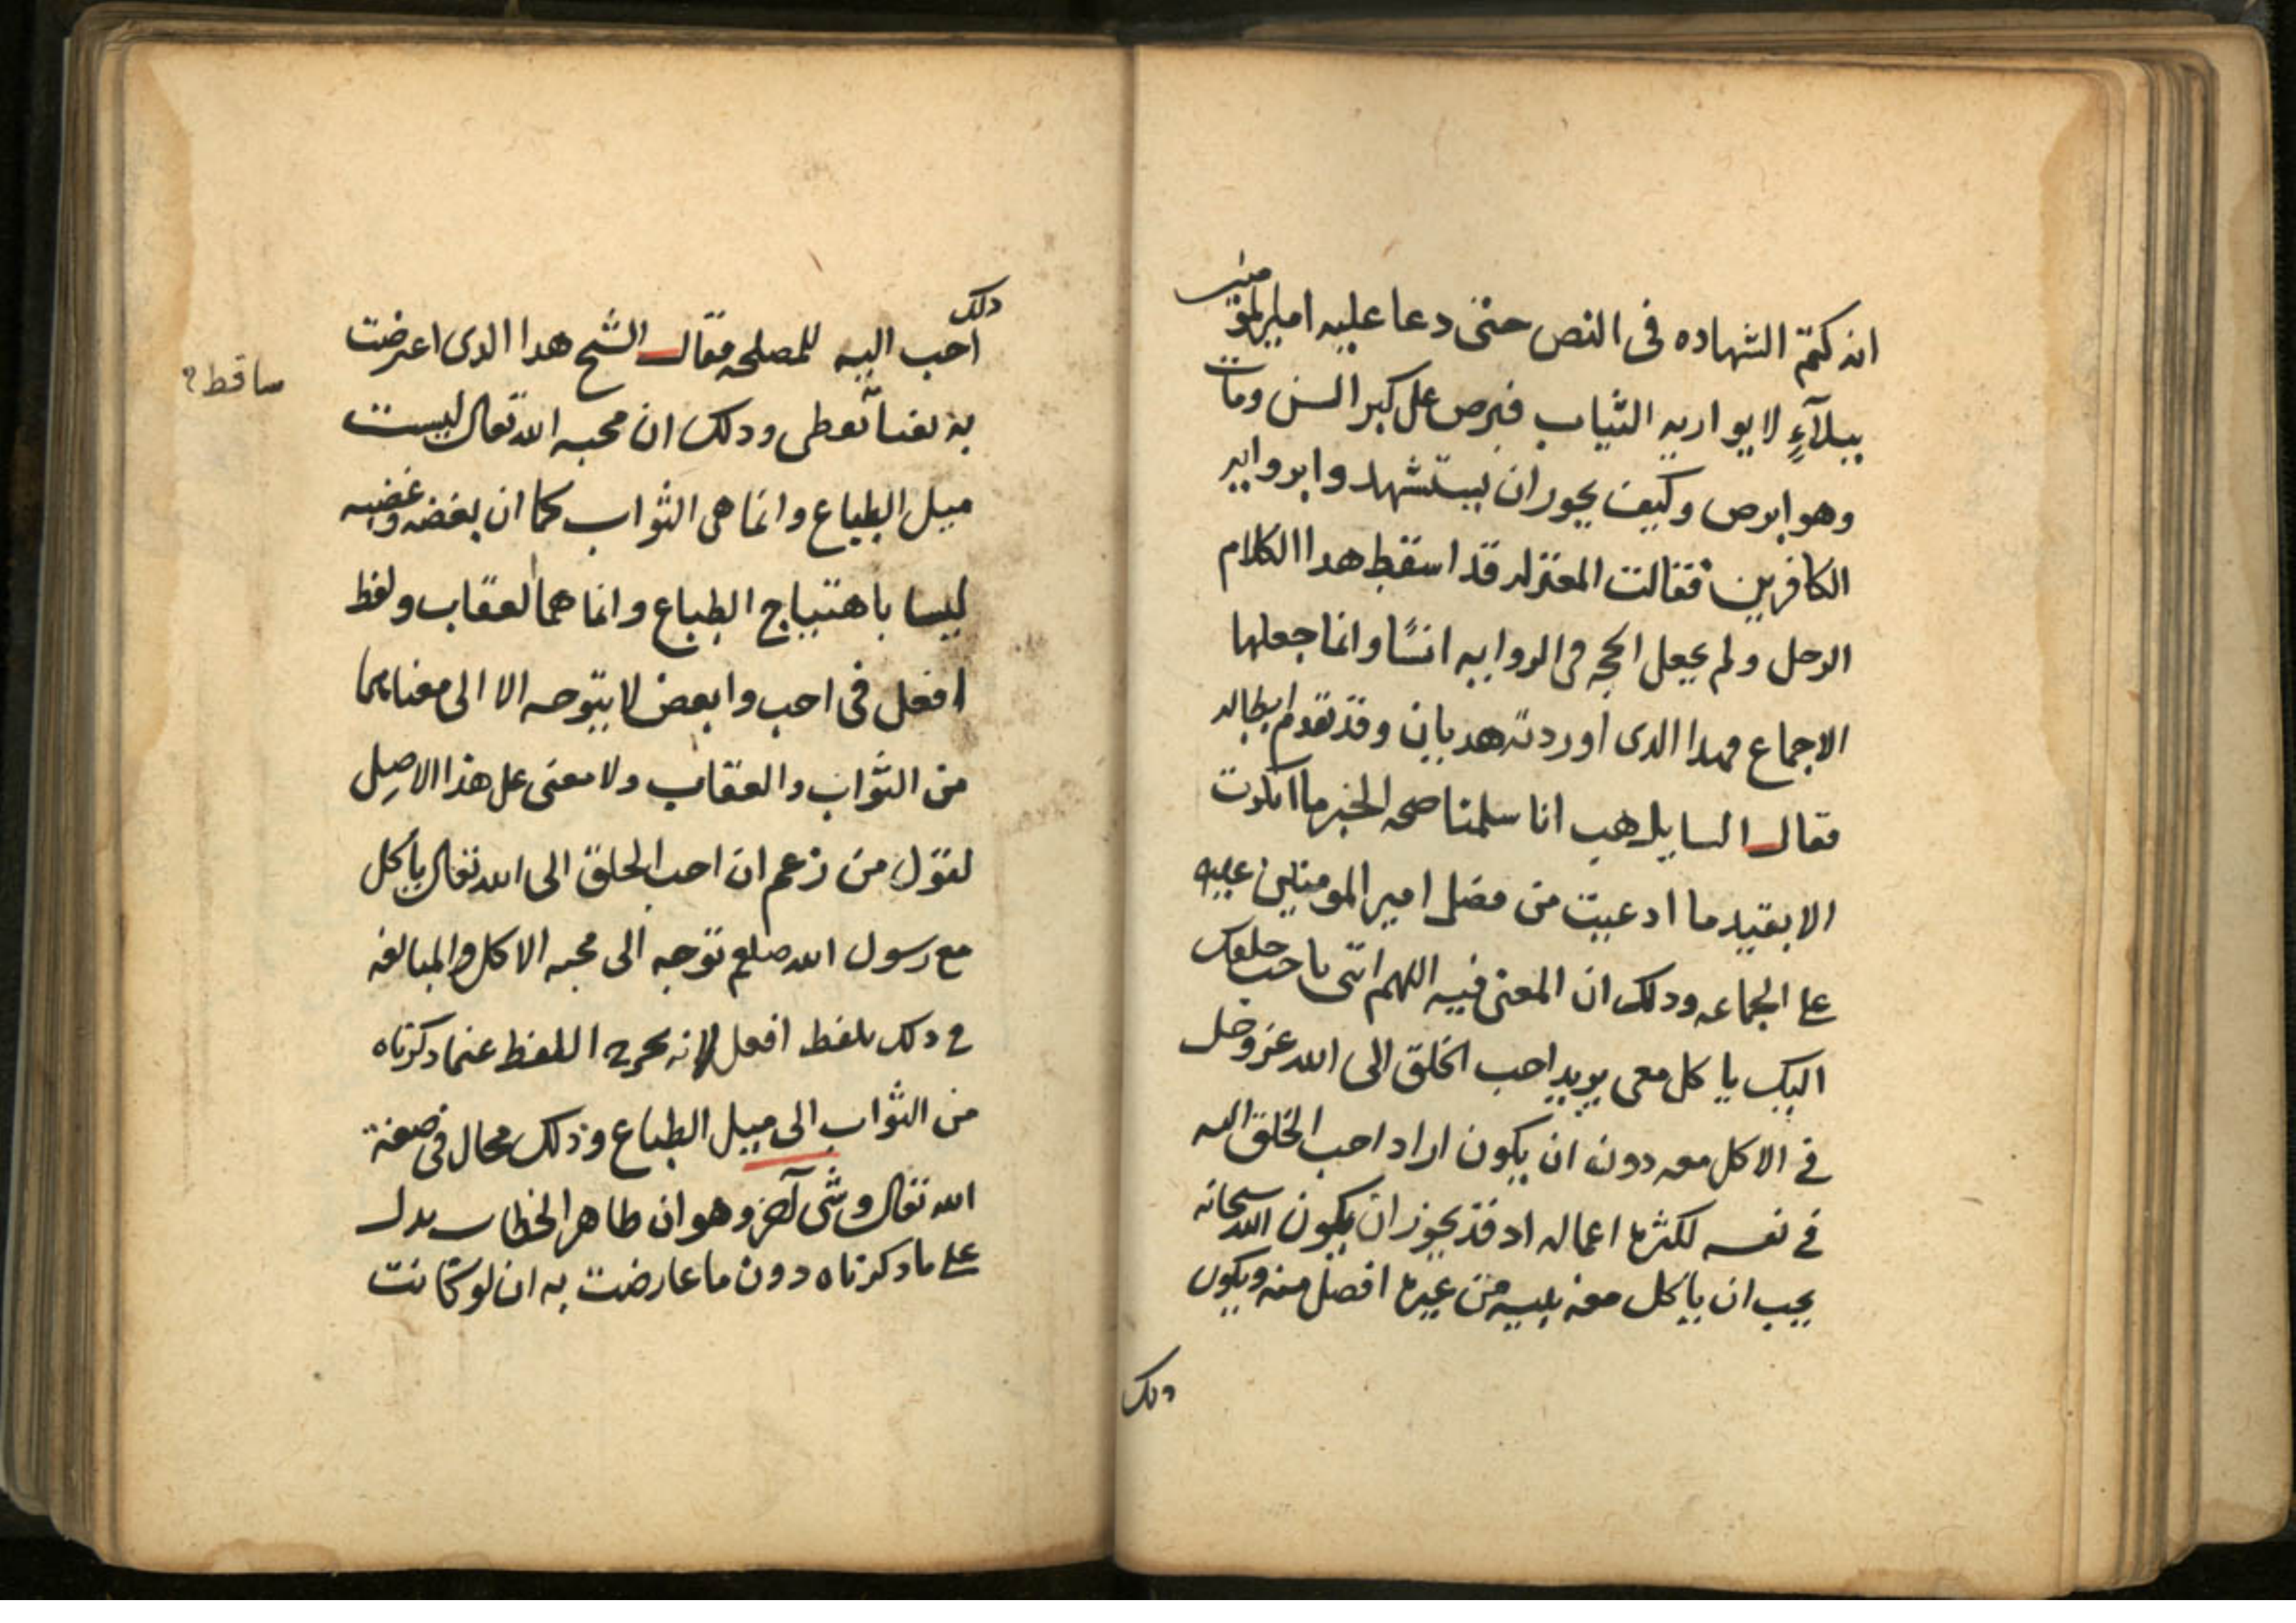 انه كتم الشهاده فى النص حتى دعا عليه امير المومنين
ببلآءٍ لا يواريه الثياب فبرص على كبر السن ومات
وهو ابرص وكيف يجوز ان يستشهد وابروايه
الكافرين فقالت المعتزله قد اسقط هدا الكلام
الرحل ولم يجعل الحجه فى الروايه انسًا وانما جعلها
الاجماع فهدا الدى اوردته هديان وقد تقدم ابطاله
فقال السايل هب انا سلمنا صحه الخبر ما انكرت
الا بفيد ما ادعيت من فضل امير المومنين عليه
على الجماعه ودلك ان المعنى فيه اللهم ائتنى باحب خلقك
اليك ياكل معى يريد احب الخلق الى الله عز وجل
فى الاكل معه دون ان يكون اراد احب الخلق اليه
فى نفسه لكثرة اعماله اد قد يجوز ان يكون الله سبحانه
يحب ان ياكل معه نبيه من غيره افضل منه ويكون
دلك
دلك
احب اليه للمصلحه فقال الشيخ هدا الدى اعترضت
به ساقط ودلك ان محبه الله تعالى ليست
ساقط
ميل الطباع وانما هى الثواب كما ان بغضه وغضبه
ليسا باهتياج الطباع وانما هما العقاب ولفظ
افعل فى احب وابغض لا يتوجه الا الى معناهما
من الثواب والعقاب ولا معنى على هذا الاصل
لقول من زعم ان احب الخلق الى الله تعالى ياكل
مع رسول الله صلعم توجه الى محبه الاكل والمبالغه
فى دلك بلفظ افعل لانه يخرج اللفظ عما دكرناه
من الثواب الى ميل الطباع وذلك محال فى صفة
الله تعالى وشى آخر وهو ان ظاهر الخطاب يدل
على ما دكرناه دون ما عارضت به ان لو كانت